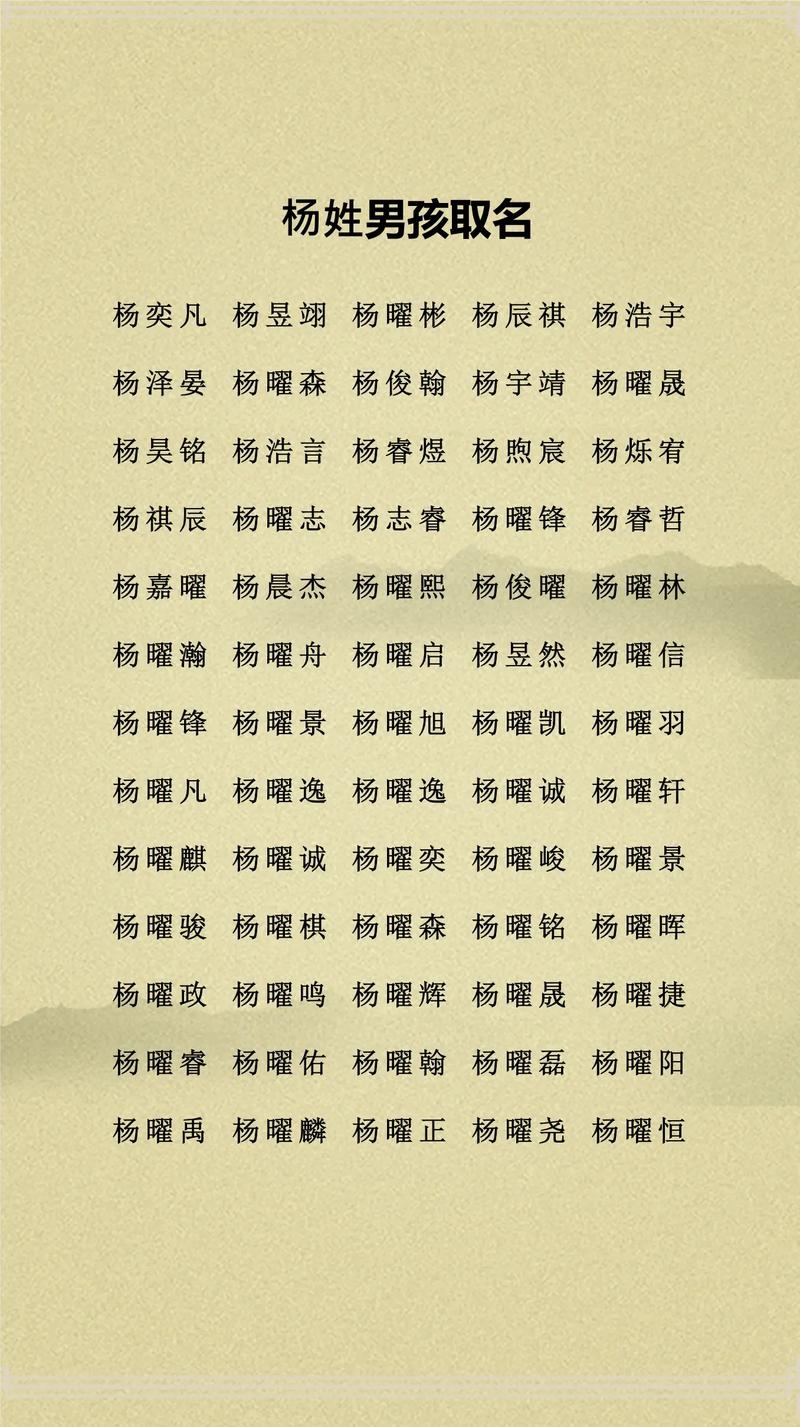 杨姓男孩取名
杨奕凡 杨昱翊 杨曜彬 杨辰祺 杨浩宇
杨泽晏 杨曜森 杨俊翰 杨宇靖 杨曜晟
杨昊铭 杨浩言 杨睿煜 杨煦宸 杨烁宥
杨祺辰 杨曜志 杨志睿 杨曜锋 杨睿哲
杨嘉曜 杨晨杰 杨曜熙 杨俊曜 杨曜林
杨曜瀚 杨曜舟 杨曜启 杨昱然 杨曜信
杨曜锋 杨曜景 杨曜旭 杨曜凯 杨曜羽
杨曜凡 杨曜逸 杨曜逸 杨曜诚 杨曜轩
杨曜麒 杨曜诚 杨曜奕 杨曜峻 杨曜景
杨曜骏 杨曜棋 杨曜森 杨曜铭 杨曜晖
杨曜政 杨曜鸣 杨曜辉 杨曜晟 杨曜捷
杨曜睿 杨曜佑 杨曜翰 杨曜磊 杨曜阳
杨曜禹 杨曜麟 杨曜正 杨曜尧 杨曜恒